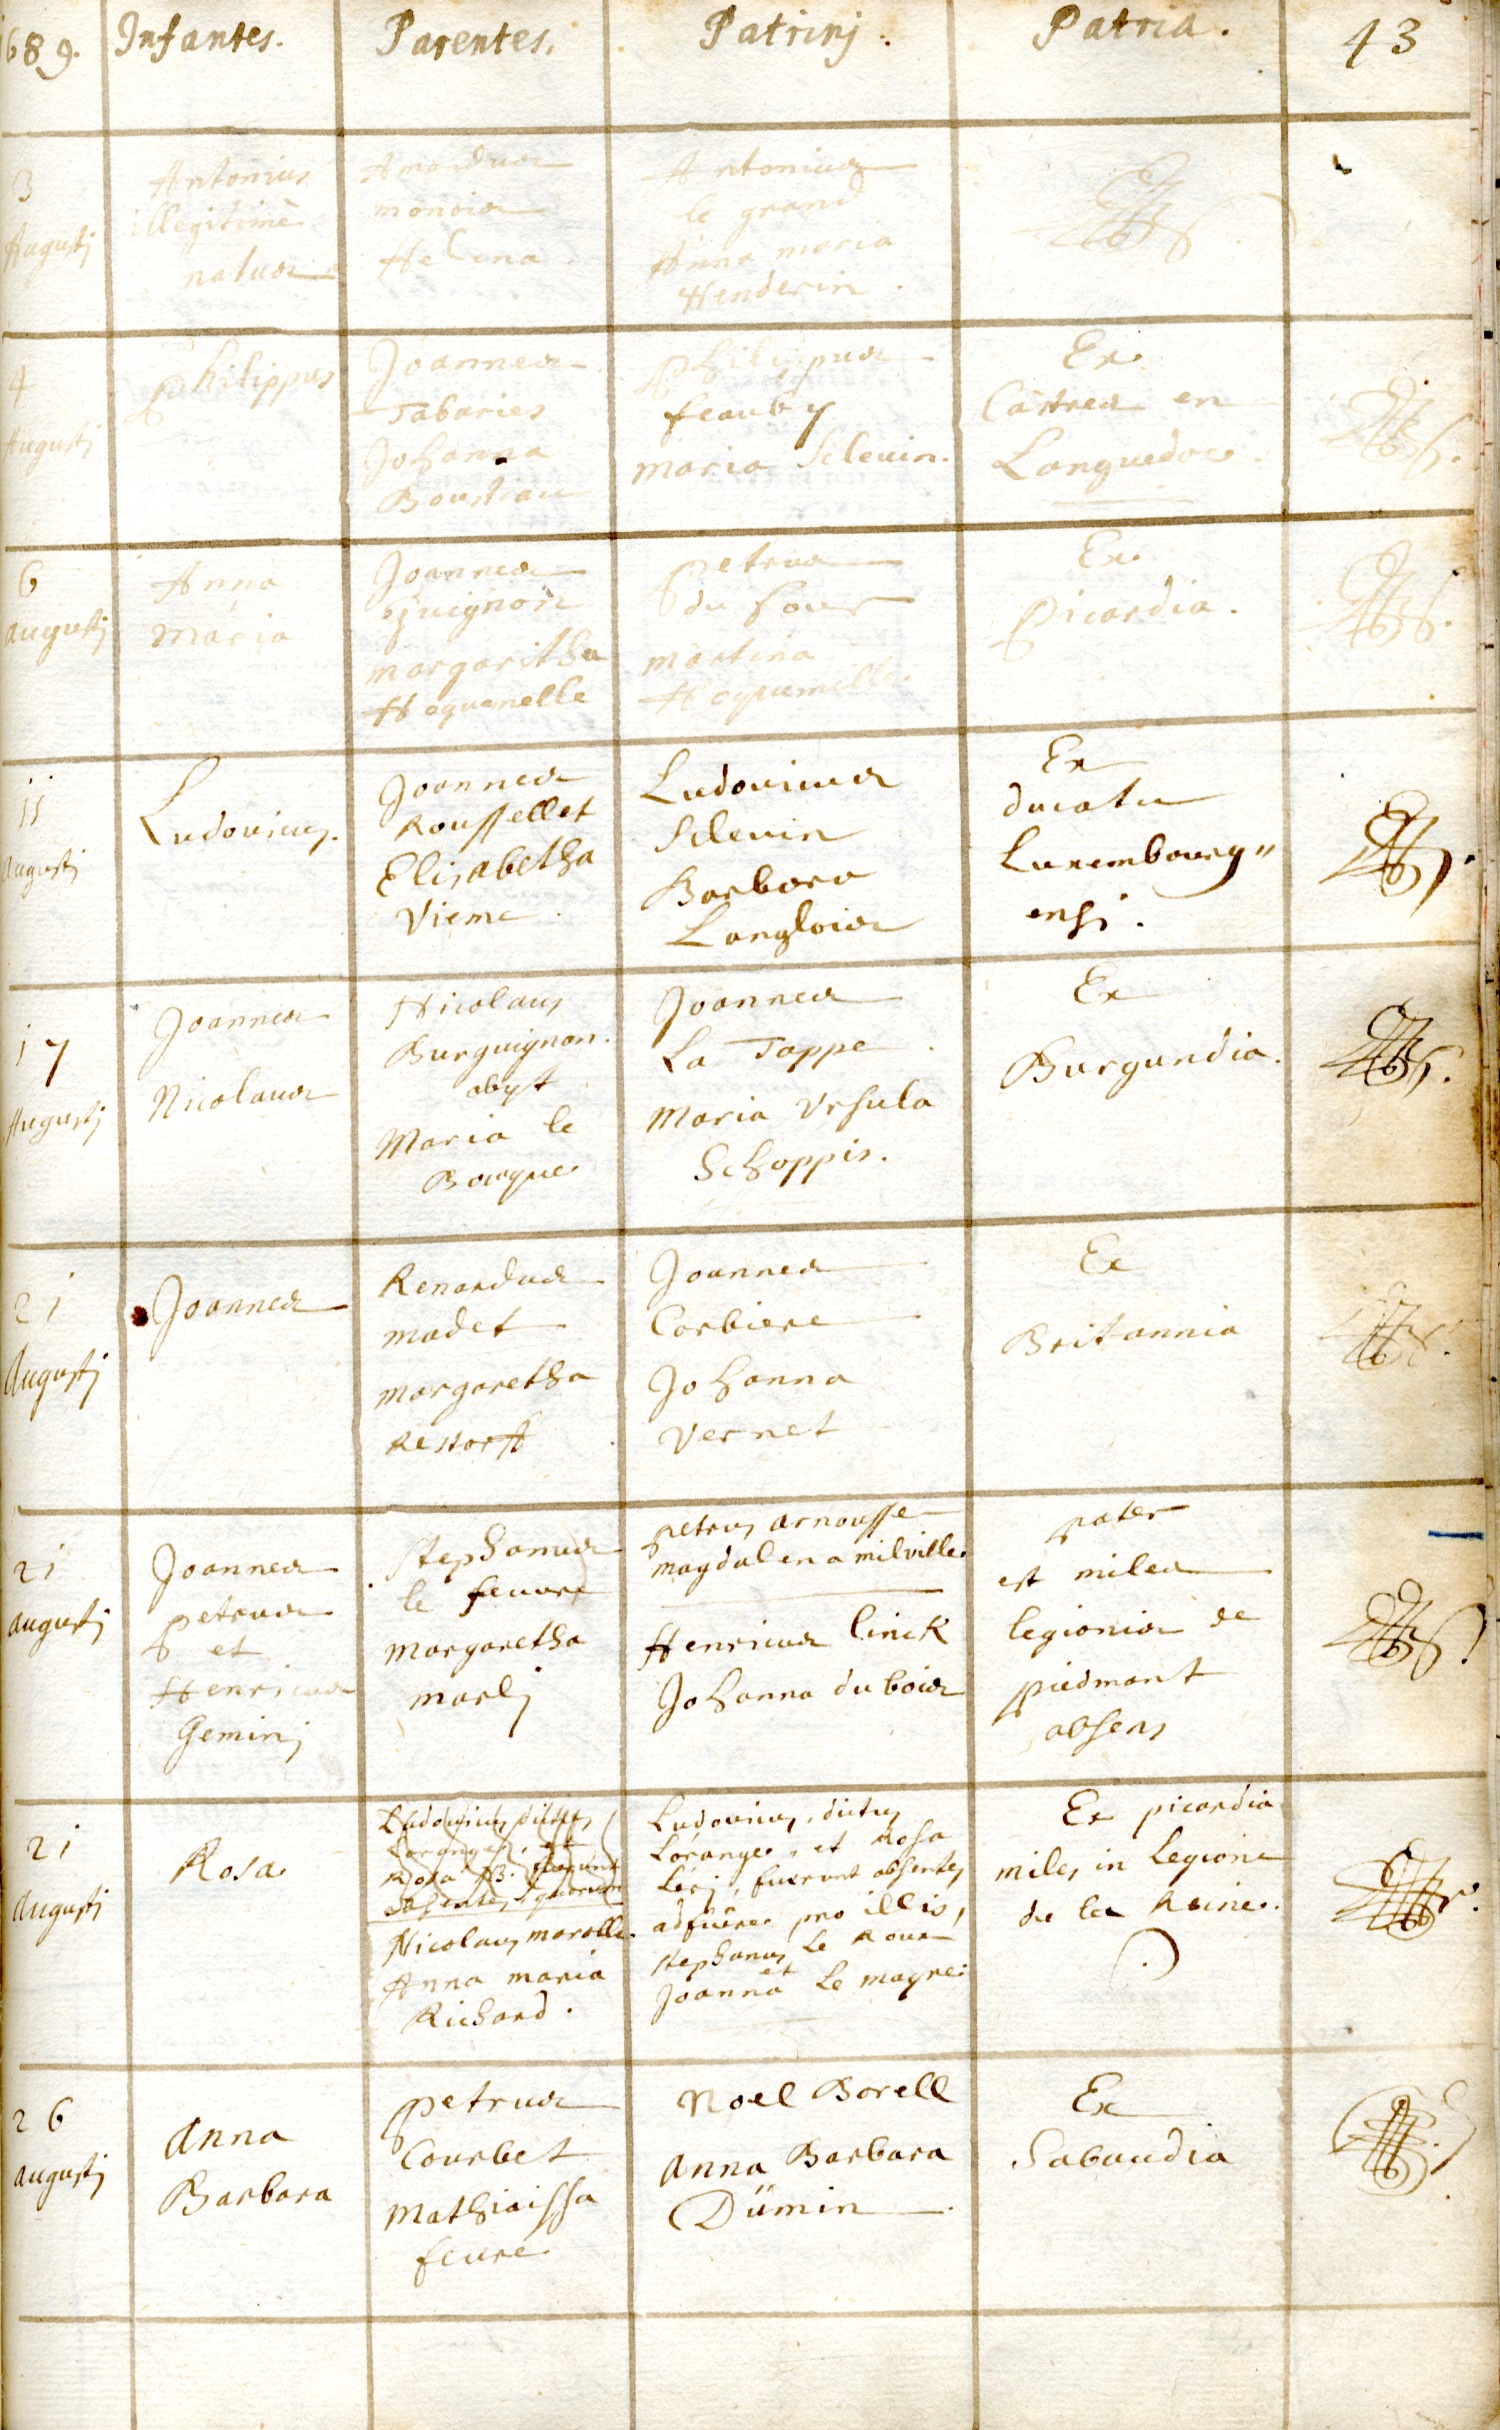 1689. Infantes. Parentes. Patrinj. Patria. 43
3
Augustj
Antonius
illegitimè
natus
Amandus
monois
Helena
Antonius
le grand
Anna maria
Henderin.
4
Augustj
Philippus
Joannes
Tabaries
Johanna
Philippus
maria Sclevin.
Ex
Castres en
Languedoc.
6
augustj
Anna
Maria
Joannes
margaritha
Hoquenelle
petrus
du four
martina
Hoqumelle.
Ex
Picardia.
11
Augustj
Ludovicus.
Joannes
Roussellet
Elisabetha
Vieme.
Ludovicus
Sclevin
Barbara
Langlois
Ex
ducatu
Luxembourg"
ensi.
17
Augustj
Joannes
Nicolaus
Nicolaus
Burguignon.
abijt
Maria le
Bocque
Joannes
La Tappe.
Maria Ursula
Schoppis.
Ex
Burgundia.
21
Augustj
Joannes
Renardus
madet
margaretha
Restorff
Joannes
Corbiere
Johanna
Vernet
Ex
Britannia
21
augustj
Joannes
petrus
et
Henricus
Geminj
Stephanus
le feuure
Margaretha
marlj
petrus arnousse
magdalena milville
Henricus linck
Johanna du bois
pater
est miles
legionis de
piedmont
absens
21
Augustj
Rosa
Ludovicus dictus
Loranger, et
Rosa
absentes, quorum
Nicolaus marolle.
Anna maria
Richard.
Ludovicus, dictus
Lorange, et Rosa
Lerj, fuerunt absentes,
adfuêre pro illis,
stephanus Le Roux
et
Joanna Le magre
Ex picardia
miles in Legione
de la Reine.
26
augustj
Anna
Barbara
petrus
Courbet
Mathiaissa
feure
Noel Borell
Anna Barbara
Dümin
Ex
Sabaudia